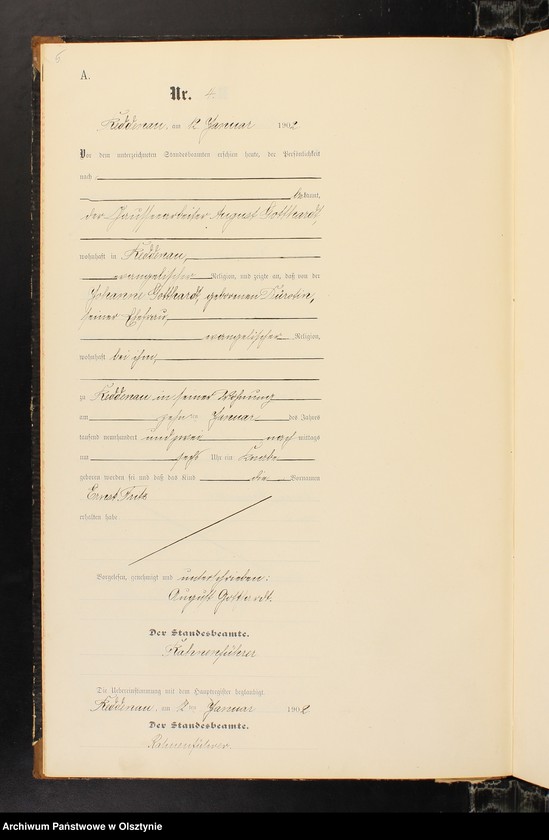 5
A.
Nr. 4
Kiddenau, am 12 Januar 1902
Vor dem unterzeichneten Standesbeamten erschien heute, der Persönlichkeit
nach
bekannt,
der August Gotthardt,
wohnhaft in Kiddenau,
evangelischer Religion, und zeigte an, daß von der
Johanne Gotthardt, geborenen
seiner Ehefrau,
evangelischer Religion,
wohnhaft bei ihm,
zu Kiddenau in seiner Wohnung
am zehn Januar des Jahres
tausend neunhundert und zwei nach mittags
um sechs Uhr ein Knabe
geboren worden sei und daß das Kind die Vornamen
Ernst Fritz
erhalten habe
Vorgelesen, genehmigt und unterschrieben:
August Gotthardt.
Der Standesbeamte.
Die Uebereinstimmung mit dem Hauptregister beglaubigt
Kiddenau, am 12 Januar 1902
Der Standesbeamte.
Archiwum Państwowe w Olsztynie